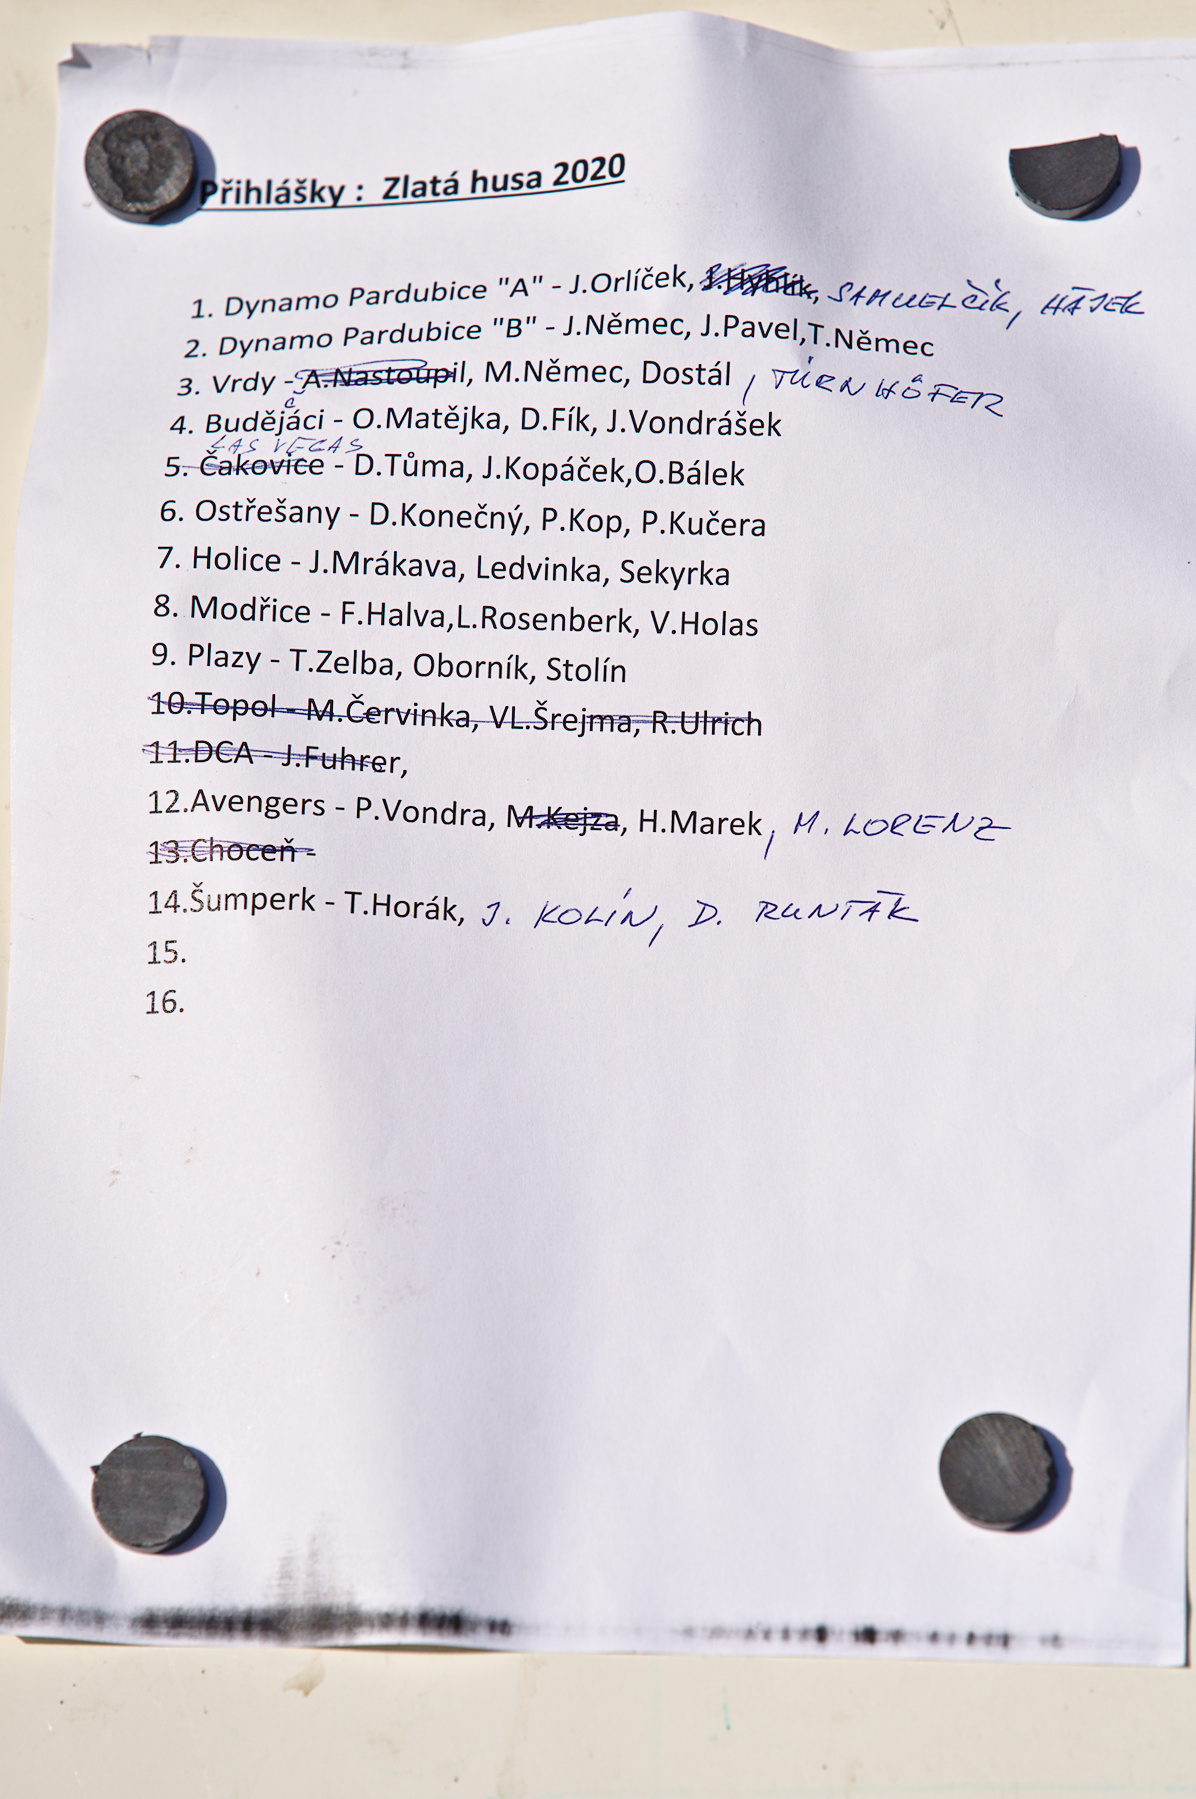 Přihlášky : Zlatá husa 2020
1. Dynamo Pardubice "A" - J.Orlíček, J.Hyblík, SAMUELČÍK, HÁJEK
2. Dynamo Pardubice "B" - J.Němec, J.Pavel,T.Němec
3. Vrdy - A.Nastoupil, M.Němec, Dostál , TÚRNHÔFER
4. Budějáci - O.Matějka, D.Fík, J.Vondrášek
LAS VEGAS
5. Čakovice - D.Tůma, J.Kopáček,O.Bálek
6. Ostřešany - D.Konečný, P.Kop, P.Kučera
7. Holice - J.Mrákava, Ledvinka, Sekyrka
8. Modřice - F.Halva,L.Rosenberk, V.Holas
9. Plazy - T.Zelba, Oborník, Stolín
10.Topol - M.Červinka, VL.Šrejma, R.Ulrich
11.DCA - J.Fuhrer,
12.Avengers - P.Vondra, M.Kejza, H.Marek , M. LORENZ
13.Choceň -
14.Šumperk - T.Horák, J. KOLÍN, D. RUNTÁK
15.
16.